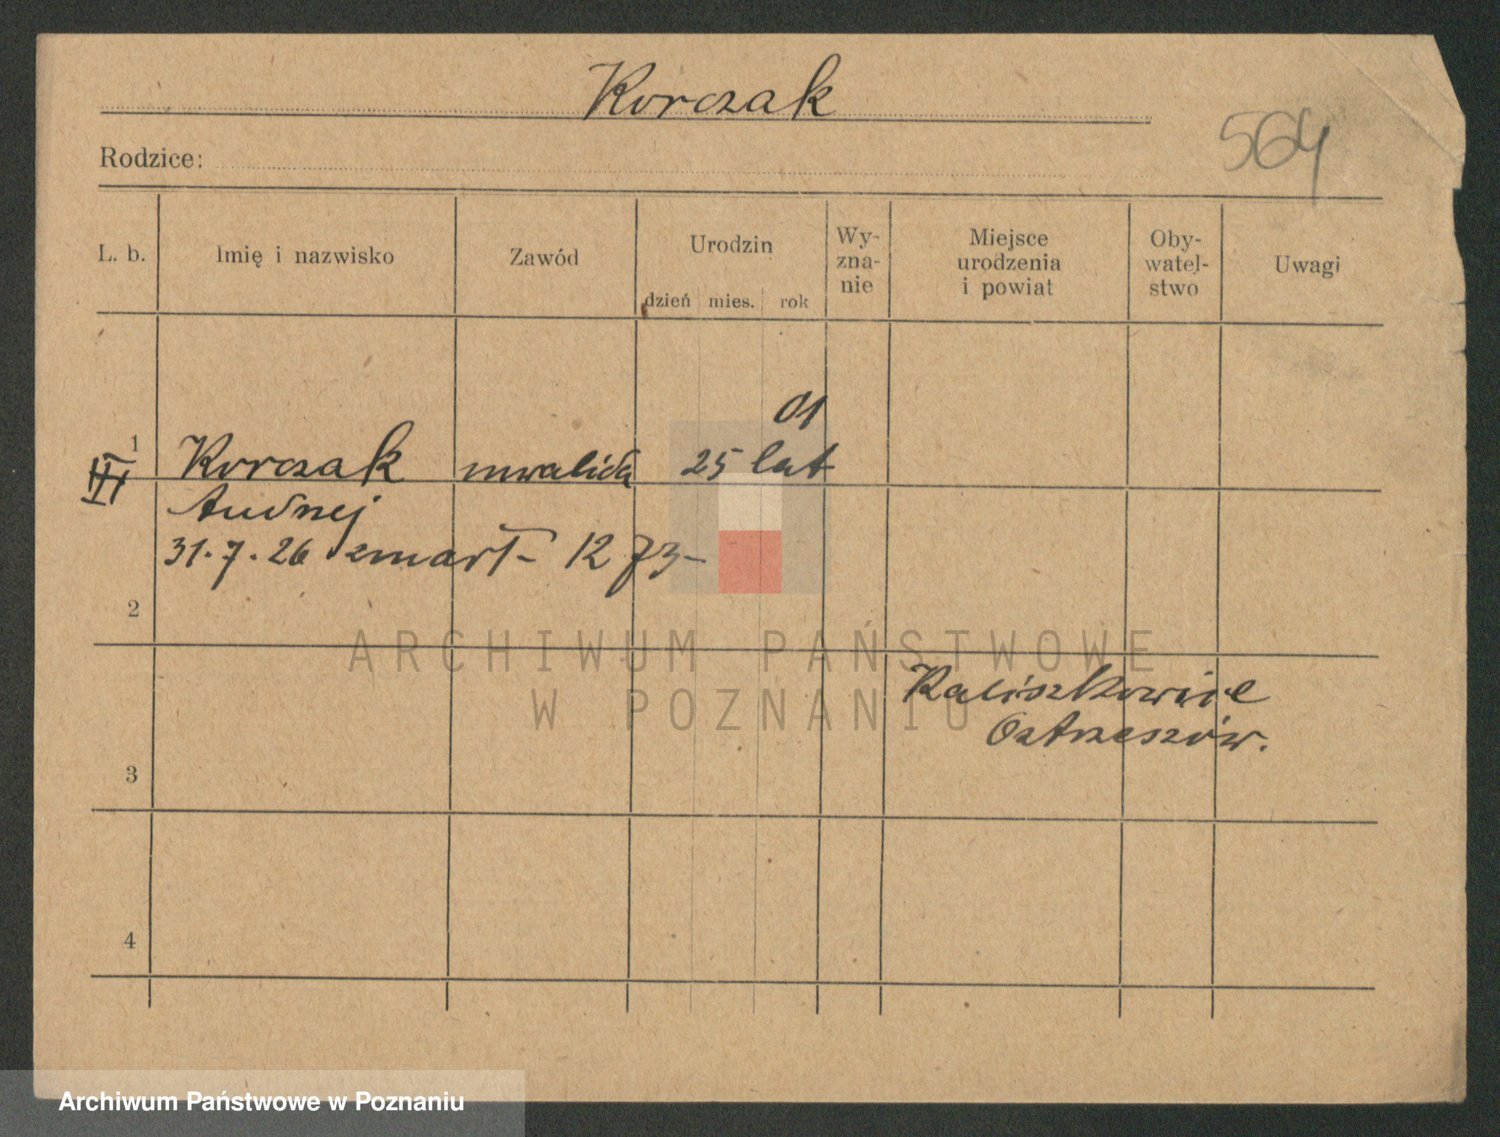 Korczak
564
Rodzice:
L. b.
Imię i nazwisko
Zawód
Urodzin
dzień mies. rok
Wy-
zna-
nie
Miejsce
urodzenia
i powiat
Oby-
watel-
stwo
Uwagi
01
1 Korczak inwalida 25 lat
III
Andrzej
31.7.26 zmarł - 1273-
2
ARCHIWUM PAŃSTWOWE
W POZNANIU
Kaliszkowice
Ostrzeszów.
3
4
Archiwum Państwowe w Poznaniu